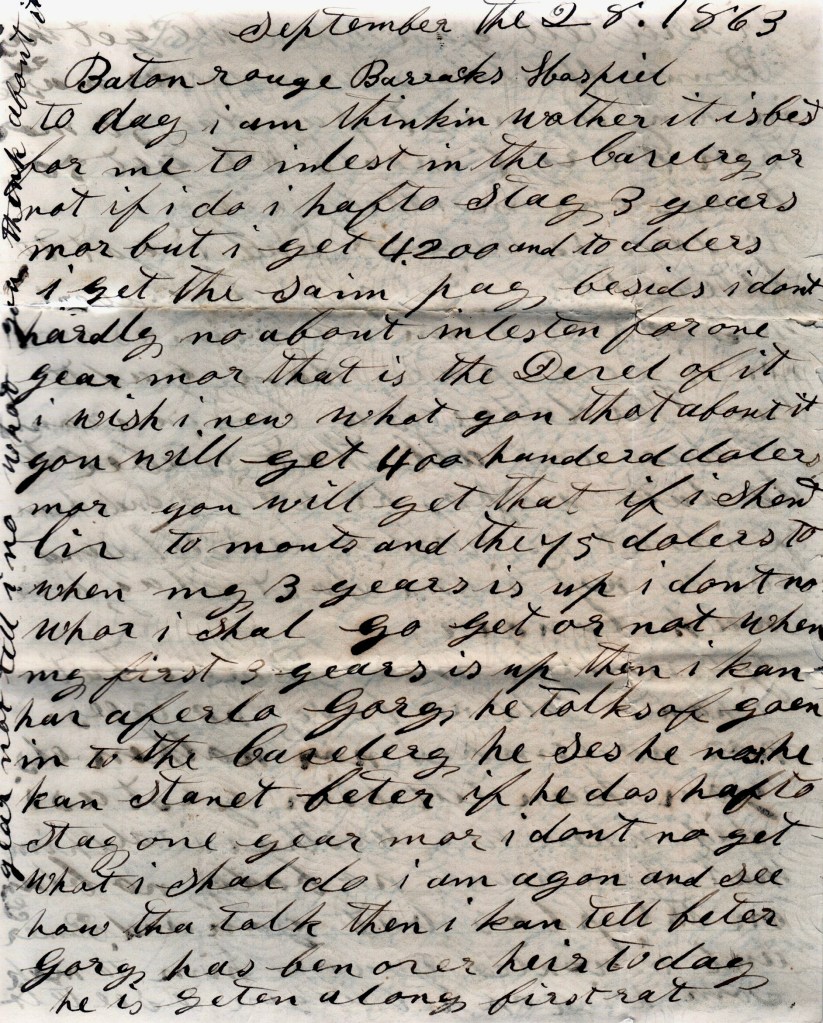 September the 28. 1863
Baton rouge Barracks Hospiel
to day i am thinkin wather it is bes
for me to inlest in the Cavelery or
not if i do i hafto stay 3 years
mor but i get 4200 and to dolers
i get the saim pay besids i dont
hardly no about inlesten for one
year mor that is the Devel of it
i wish i new what you that about it
you will get 400 hunderd dolers
mor you will get that if i shent
liv to monts and the 75 dolers to
when my 3 years is up i dont no
whar i shal go get or not when
my first 3 years is up then i kan
hav a ferlo Gorg he talks of goen
in to the Cavelery he ses he nos he
kan stanet beter if he dos hafto
stay one year mor i dont no get
what i shal do i am agon and see
how tha talk then i kan tell beter
Gorg has ben over heir to day
he is geten along first rat
year not tell i no what you think about it